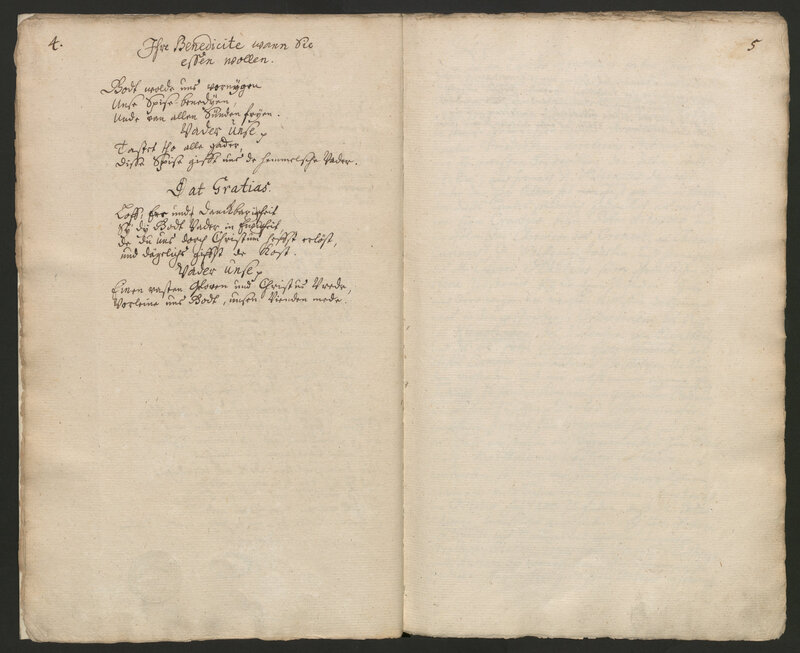 4.
Ihre Benedicite wann Sie
essen wollen.
Godt wolde uns vornÿgen
Unse Spise benedÿen,
Unde van allen Sunden frÿen.
Vader Unse
Tastet tho alle gader,
Disse Spise gifft uns de hemmelsche Vader.
Dat Gratias.
Loff, Ere und Danckbarigheit
Sÿ dÿ Godt Vader in Ewigheit
de du uns dorch Christum heffst erlöst,
und dägelichs giffst de Kost.
Vader Unse
Einen vasten Gloven und Christus Vrede,
Vorleine uns Godt, unsen Vienden mede.
5